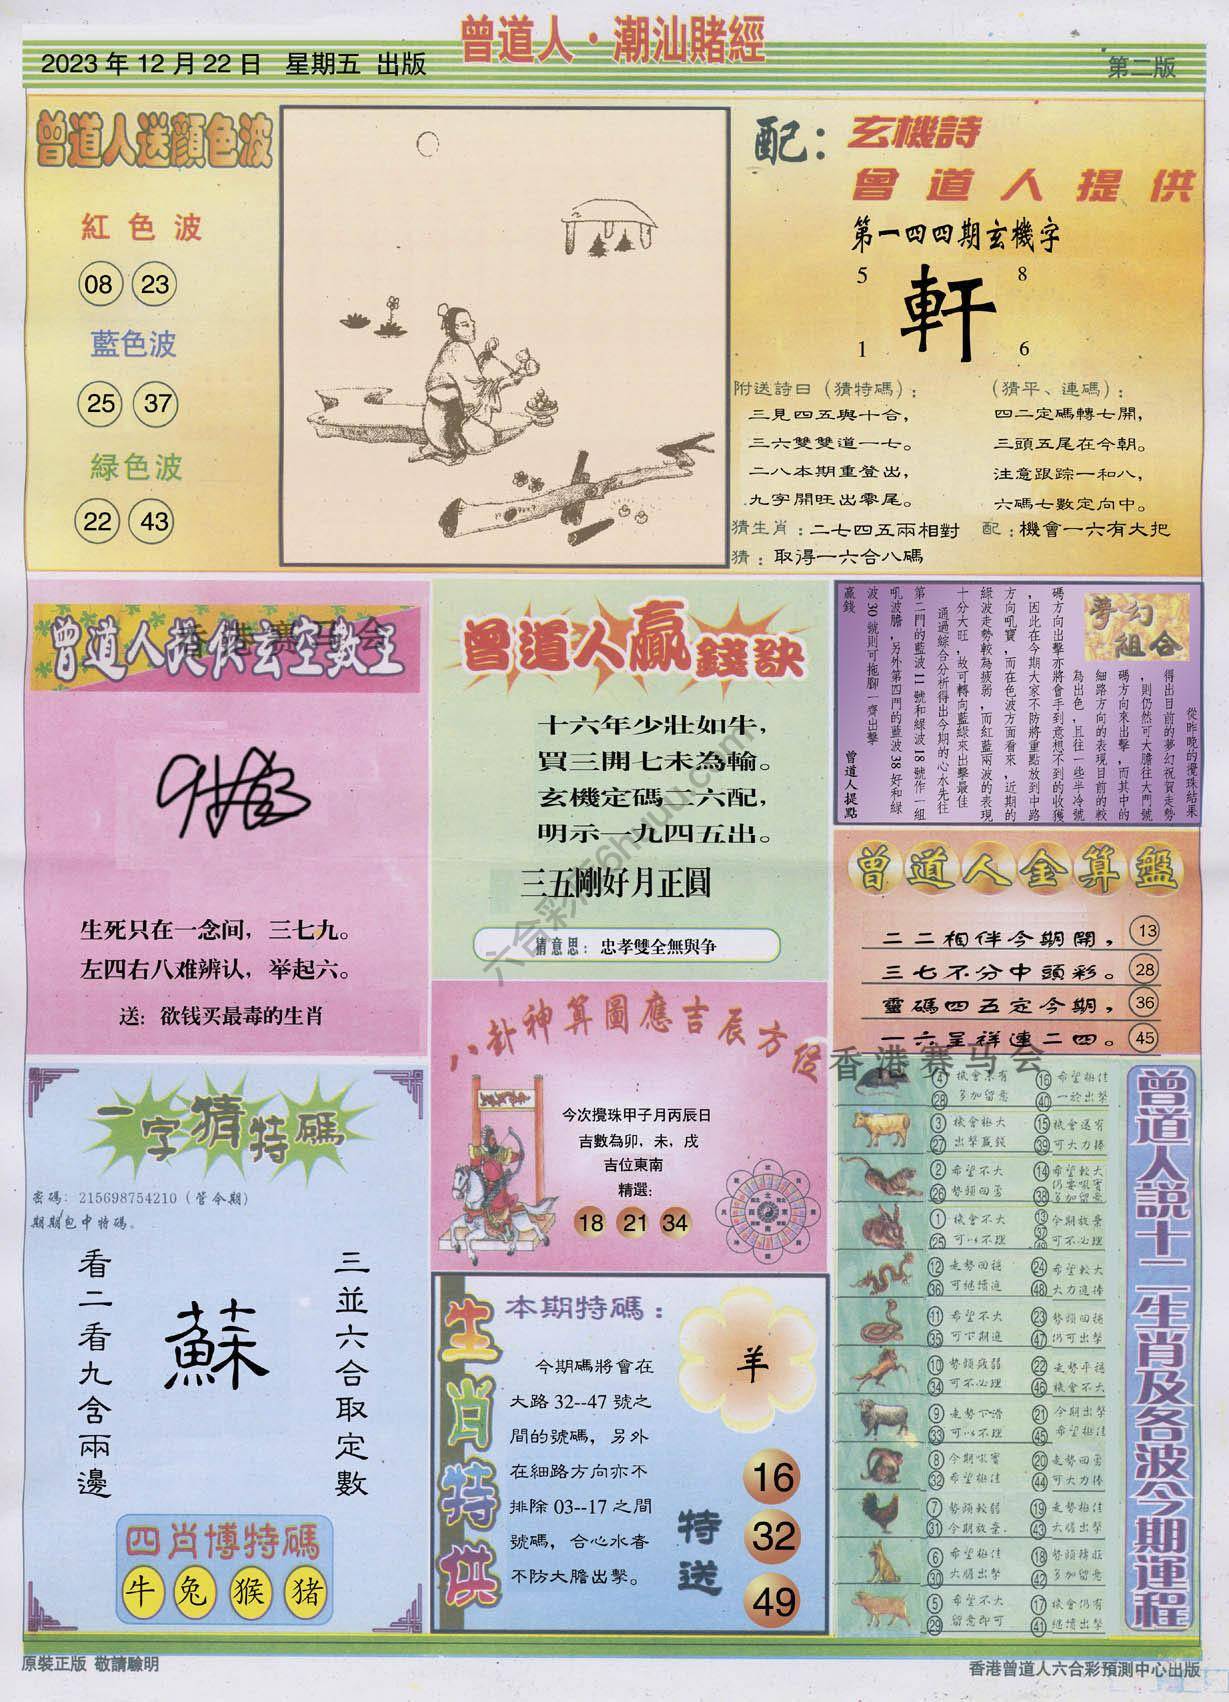 曾道人·潮汕賭經
2023年12月22日 星期五 出版
第二版
曾道人送顏色波
紅色波
08 23
藍色波
25 37
緑色波
22 43
配：
玄機詩
曾道人提供
第一四四期玄機字
5 8
軒
1 6
附送詩曰（猜特碼）：
三見四五與十合，
三六雙雙道一七。
二八本期重登出，
九字開旺出零尾。
（猜平、連碼）：
四二定碼轉七開，
三頭五尾在今朝。
注意跟踪一和八，
六碼七數定向中。
猜生肖：二七四五兩相對
配：機會一六有大把
猜：取得一六合八碼
曾道人提供玄空數王
香港赛马会
生死只在一念间，三七九。
左四右八难辨认，举起六。
送：欲钱买最毒的生肖
曾道人贏錢訣
十六年少壯如牛，
買三開七未為輸。
玄機定碼二六配，
明示一九四五出。
三五剛好月正圓
猜意思：忠孝雙全無與爭
夢幻組合
從昨晚的攪珠結果
得出目前的夢幻祝賀走勢
，則仍然可大膽往大門號
碼方向來出擊，而其中的
細路方向的表現目前的較
為出色，且往一些半冷號
碼方向出擊亦將會手到意想不到的收獲
，因此在今期大家不防將重點放到中路
方向吼寶，而在色波方面看來，近期的
綠波走勢較為疲弱，而紅藍兩波的表現
十分大旺，故可轉向藍綠來出擊最佳
通過綜合分析得出今期的心水先往
第二門的藍波11號和綠波18號作一組
吼波膽，另外第四門的藍波38好和綠
波30號則可拖腳一齊出擊
贏錢
曾道人提點
曾道人金算盤
二二相伴今期開， 13
三七不分中頭彩。 28
靈碼四五定今期， 36
一六呈祥連二四。 45
八卦神算圖應吉辰方位
香港赛马会
今次攪珠甲子月丙辰日
吉數為卯，未，戌
吉位東南
精選：
18 21 34
一字猜特碼
密碼：215698754210（管今期）
期期包中特碼。
看二看九含兩邊
蘇
三並六合取定數
四肖博特碼
牛 兔 猴 猪
生肖特供
本期特碼：
今期碼將會在
大路32--47號之
間的號碼，另外
在細路方向亦不
排除03--17之間
號碼，合心水者
不防大膽出擊。
羊
特送
16
32
49
曾道人說十二生肖及各波今期運程
4 28 多加留意
16 40 希望極佳 一於出擊
3 27 機會極大 出擊贏錢
15 39 機會還有 可大力捧
2 26 希望不大 勢頭回勇
14 38 希望較大 仍要吼實 多加留意
1 25 機會不大 可以不理
13 37 49 今期放棄 可不必理
12 36 走勢回穩 可繼續追
24 48 希望較大 大力追捧
11 35 希望不大 可下期追
23 47 勢頭回穩 仍可出擊
10 34 勢頭疲弱 可不必理
22 46 走勢平穩 機會不大
9 33 走勢下滑 可以不理
21 45 今期出擊 希望極佳
8 32 今期吼實 希望極佳
20 44 走勢回勇 可大力捧
7 31 勢頭較弱 今期放棄.
19 43 走勢極佳 大膽出擊
6 30 希望極佳 大膽出擊
18 42 勢頭轉旺 多加留意
5 29 希望不大 留意即可
17 41 機會仍有 繼續出擊
六合彩库6huu.com
原裝正版 敬請驗明
香港曾道人六合彩預測中心出版